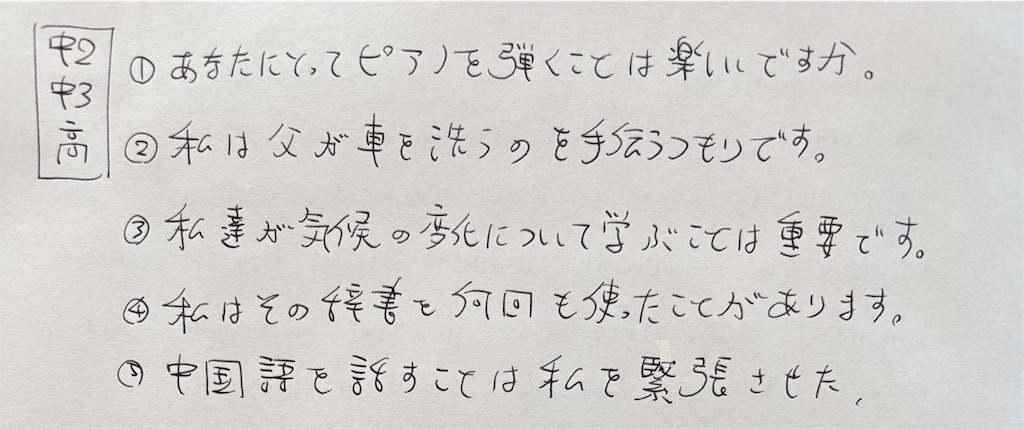 中2
中3
高
① あなたにとってピアノを弾くことは楽しいですか。
② 私は父が車を洗うのを手伝うつもりです。
③ 私達が気候の変化について学ぶことは重要です。
④ 私はその辞書を何回も使ったことがあります。
⑤ 中国語を話すことは私を緊張させた.